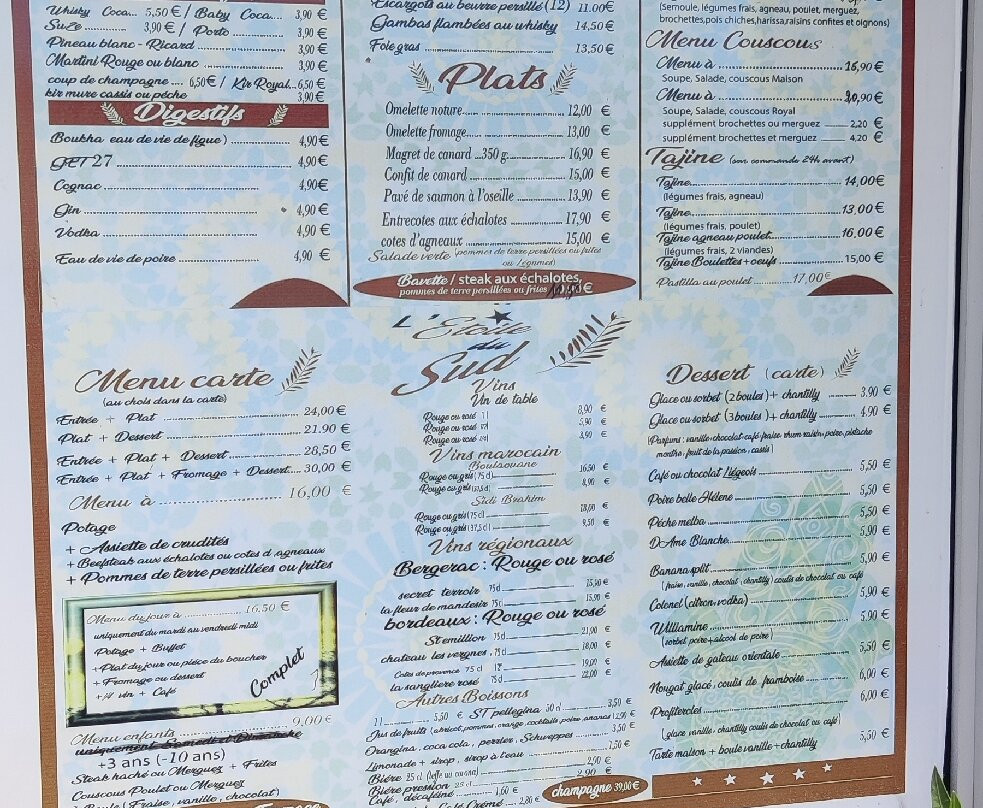 Whisky Coca.... 5,50 € / Baby Coca.... 3,90 €
Suze ........... 3,90 € / Porto ............. 3,90 €
Pineau blanc - Ricard ............. 3,90 €
Martini Rouge ou blanc ............. 3,90 €
coup de champagne .... 6,50 € / Kir Royal... 6,50 €
kir mure cassis ou pêche 3,90 €
Digestifs
Boukha eau de vie de figue) ............. 4,90 €
GET 27 ............. 4,90 €
Cognac ............. 4,90 €
Gin ............. 4,90 €
Vodka ............. 4,90 €
Eau de vie de poire ............. 4,90 €
Escargots au beurre persillé (12) 11.00€
Gambas flambées au whisky 14,50 €
Foie gras ............. 13,50 €
Plats
Omelette nature ............. 12,00 €
Omelette fromage ............. 13,00 €
Magret de canard ...350 g ............. 16,90 €
Confit de canard ............. 15,00 €
Pavé de saumon à l'oseille ............. 13,90 €
Entrecotes aux échalotes ............. 17,90 €
cotes d'agneaux ............. 15,00 €
Salade verte (pommes de terre persillées ou frites
ou légumes)
Bavette / steak aux échalotes,
pommes de terre persillées ou frites €
(Semoule, légumes frais, agneau, poulet, merguez,
brochettes, pois chiches, harissa, raisins confites et oignons)
Menu Couscous
Menu à ............. 16,90 €
Soupe, Salade, couscous Maison
Menu à ............. 20,90 €
Soupe, Salade, couscous Royal
supplément brochettes ou merguez ........ 2,20 €
supplément brochettes et merguez ........ 4,20 €
Tajine (son commande 24h avant)
Tajine ............. 14,00 €
(légumes frais, agneau)
Tajine ............. 13,00 €
(légumes frais, poulet)
Tajine agneau poulet ............. 16,00 €
(légumes frais, 2 viandes)
Tajine Boulettes + oeufs ............. 15,00 €
Pastilla au poulet ............. 17,00 €
L'Etoile
du
Sud
Menu carte
(au choix dans la carte)
Entrée + Plat ............. 24,00 €
Plat + Dessert ............. 21.90 €
Entrée + Plat + Dessert ............. 28,50 €
Entrée + Plat + Fromage + Dessert .... 30,00 €
Menu à ............. 16,00 €
Potage
+ Assiette de crudités
+ Beefsteak aux échalotes ou cotes d,agneaux
+ Pommes de terre persillées ou frites
Menu du jour à ............. 16.50 €
uniquement du mardi au vendredi midi
Potage + Buffet
+ Plat du jour ou pièce du boucher
+ Fromage ou dessert
+ 1/4 vin + Café
Complet
Menu enfants ............. 9,00 €
uniquement Samedi et Dimanche
+3 ans (-10 ans)
Steak haché ou Merguez + Frites
Couscous Poulet ou Merguez
Boule (Fraise, vanille, chocolat)
Vins
Vin de table
Rouge ou rosé 1 l 8,90 €
Rouge ou rosé 5,90 €
Rouge ou rosé 4,90 €
Vins marocain
Boulaouane
Rouge ou gris (75 cl) 16,50 €
Rouge ou gris (37,5 cl) 8,90 €
Sidi Brahim
Rouge ou gris (75 cl) 18,00 €
Rouge ou gris (37,5 cl) 9,50 €
Vins régionaux
Bergerac : Rouge ou rosé
secret terroir 75cl 15,90 €
la fleur de mandesir 75cl 15,90 €
bordeaux : Rouge ou rosé
St emillion 75cl 21,90 €
chateau les vergnes , 75cl 18,00 €
Cotes de provence 75 cl 19,00 €
la sangliere rosé 75cl 22,00 €
Autres Boissons
1 l ........ 5,50 € ST pellegina 50 cl ........ 3,50 €
Jus de fruits (abricot, pommes, orange, cocktails, poire, ananas) 2,90 €
Orangina, coca cola, perrier, Schweppes ... 3,50 €
Limonade + sirop, sirop à l'eau 1,50 €
Bière 25 cl (leffe ou corona) 2,90 €
Bière pression 25 cl 2,90 €
Café, décaféiné 1,60 €
Café Crème 2,80 €
champagne 39,00 €
Dessert (carte)
Glace ou sorbet (2 boules) + chantilly ........ 3.90 €
Glace ou sorbet (3 boules) + chantilly ........ 4,90 €
(Parfums : vanille-chocolat-café-fraise-rhum raisin-poire-pistache
menthe-fruit de la passion, cassis)
Café ou chocolat Liégeois ............. 5,50 €
Poire belle Hélène ............. 5,50 €
Pêche melba ............. 5,50 €
DAme Blanche ............. 5,90 €
Banana split ............. 5,90 €
(fraise, vanille, chocolat, chantilly) coulis de chocolat ou café
Colonel (citron, vodka) ............. 5,90 €
Williamine ............. 5,90 €
(sorbet poire + alcool de poire)
Assiette de gateau orientale ............. 5,50 €
Nougat glacé, coulis de framboise ............. 6,00 €
Profiteroles ............. 6,00 €
(glace vanille, chantilly coulis de chocolat ou café)
Tarte maison + boule vanille + chantilly 5,50 €